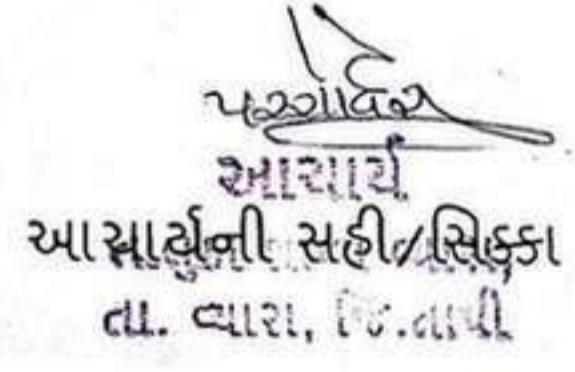 આચાર્ય
આચાર્યની સહી/સિક્કા
તા. વ્યારા, જિ.તાપી